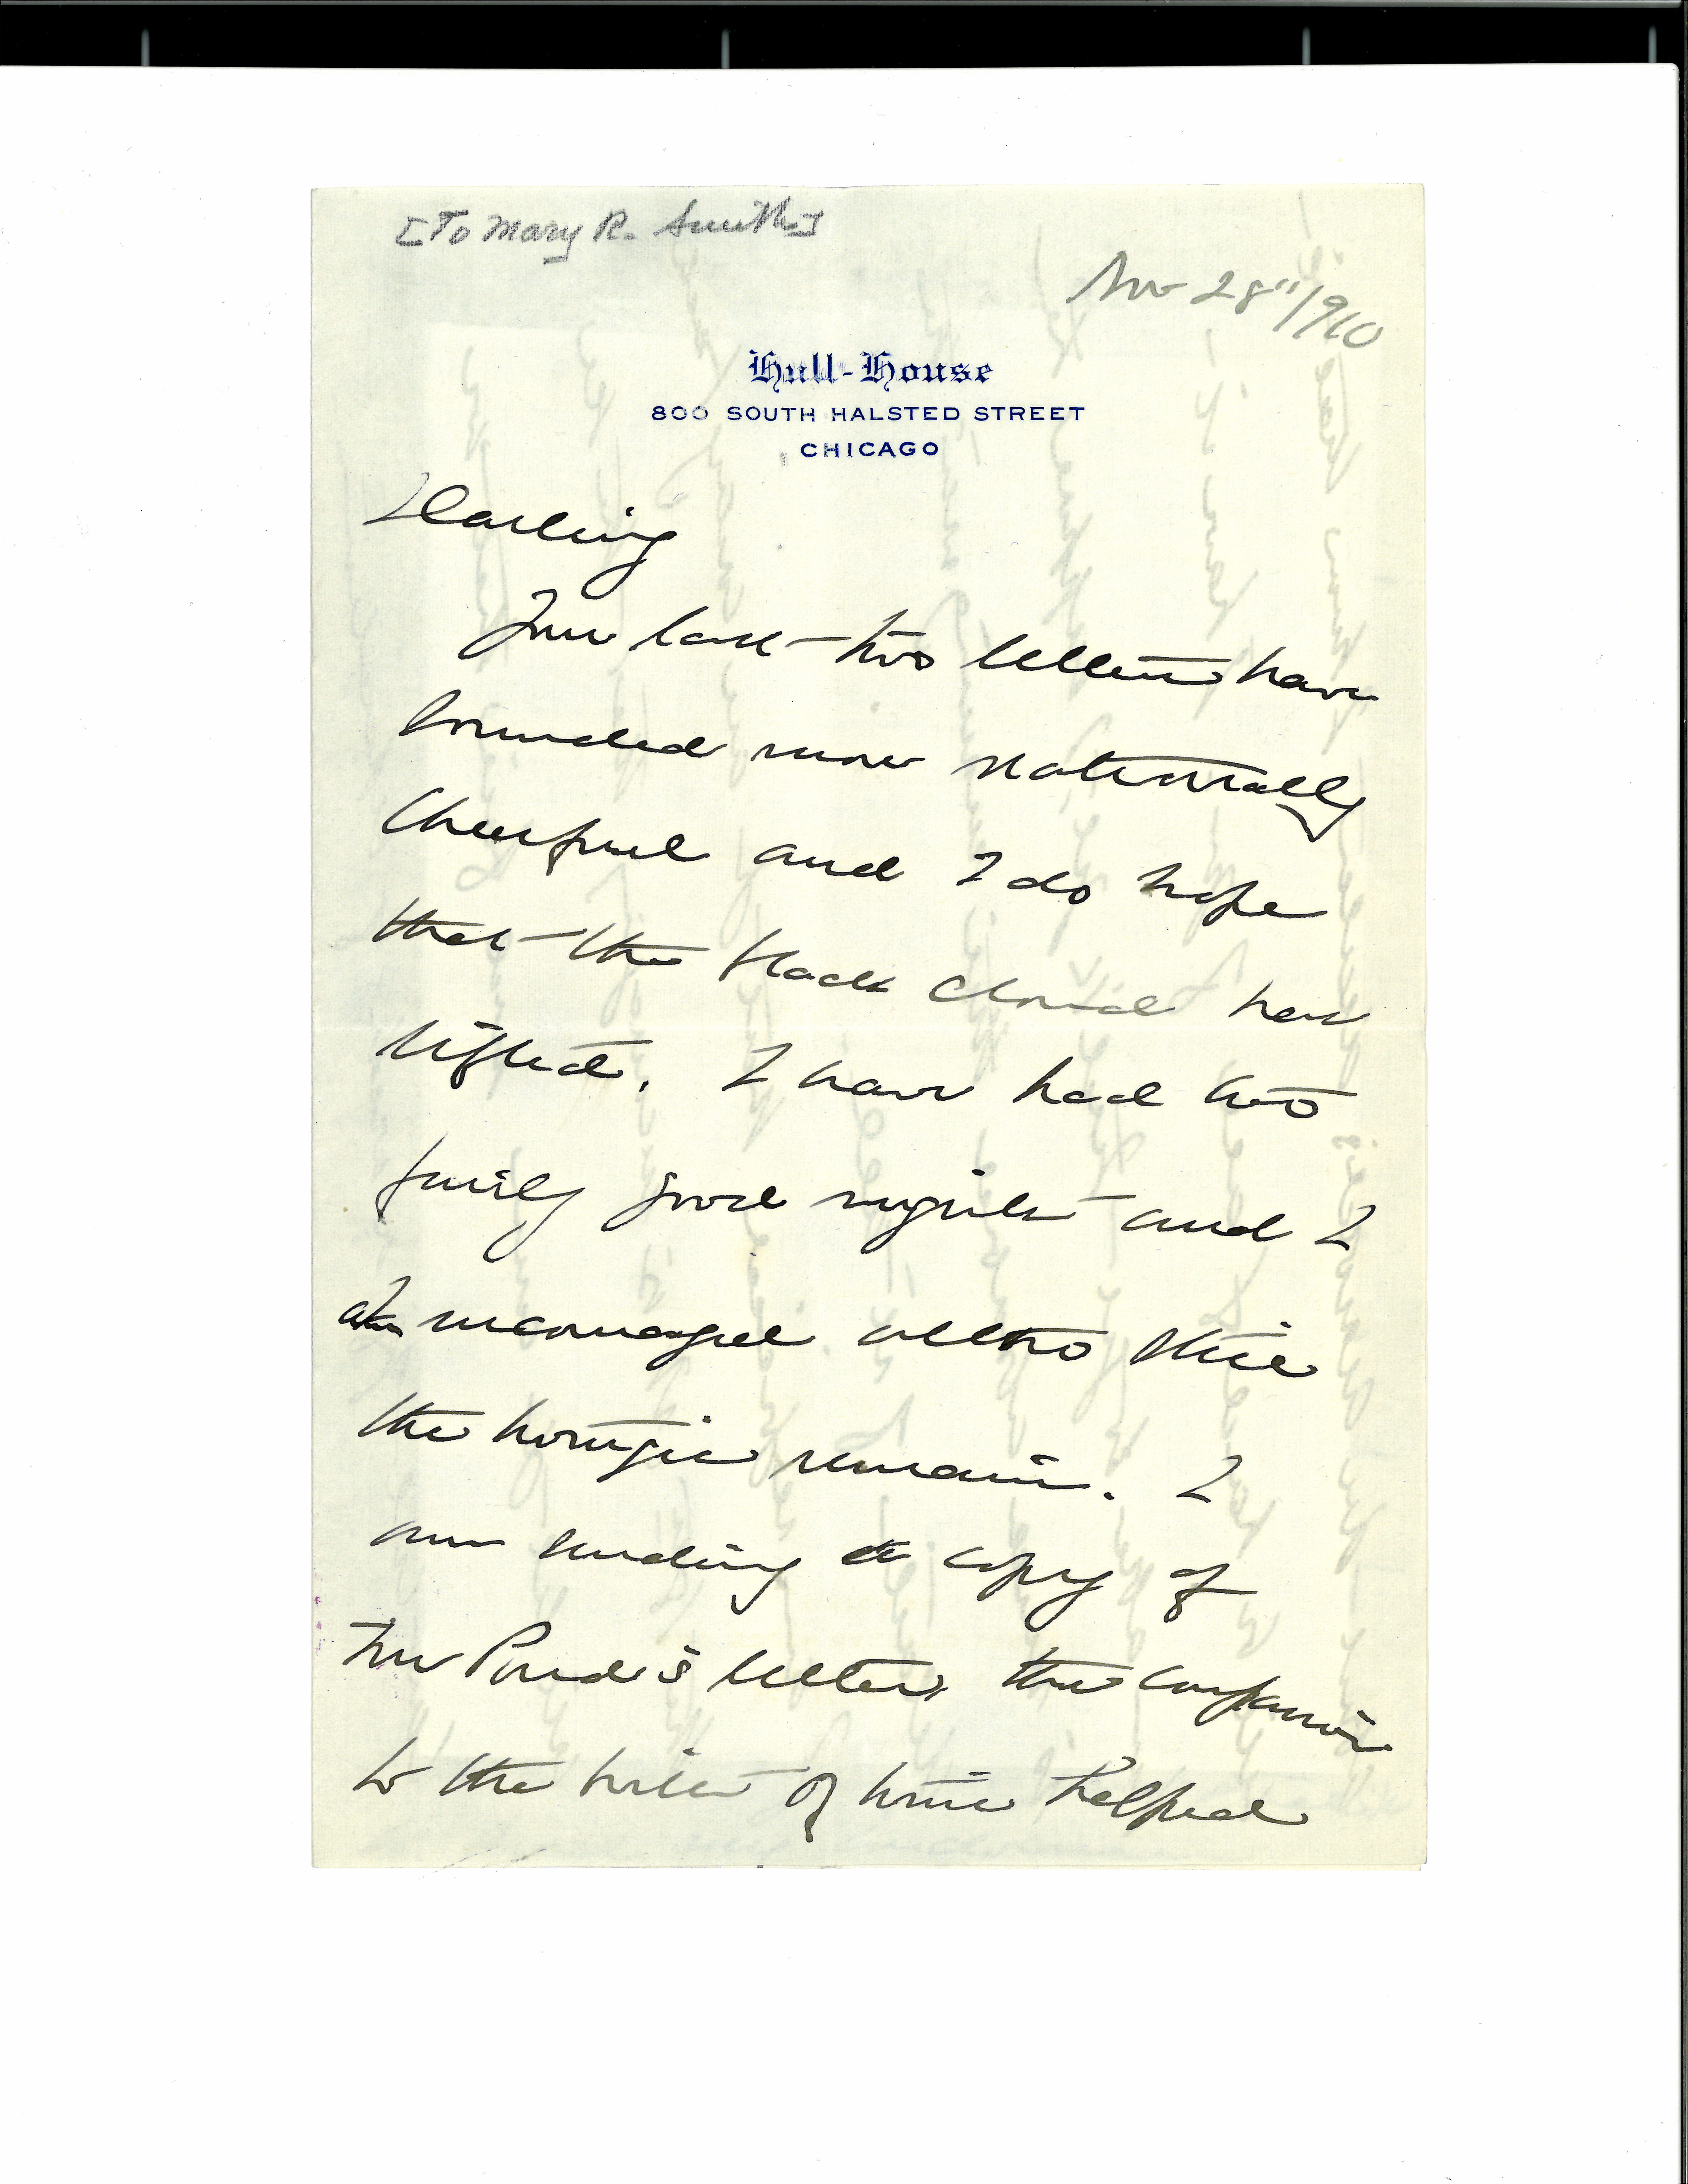 [To Mary R. Smith]
Nov 28"/910
Hull-House
800 SOUTH HALSTED STREET
CHICAGO
Darling
Your last two letters have
sounded more naturally
cheerful and I do hope
that the black cloud has
lifted. I have had two
fairly good nights and I
am encouraged altho still
the
remain. I
am sending a copy of
Mr Pond's letter, the comparison
to the of helped